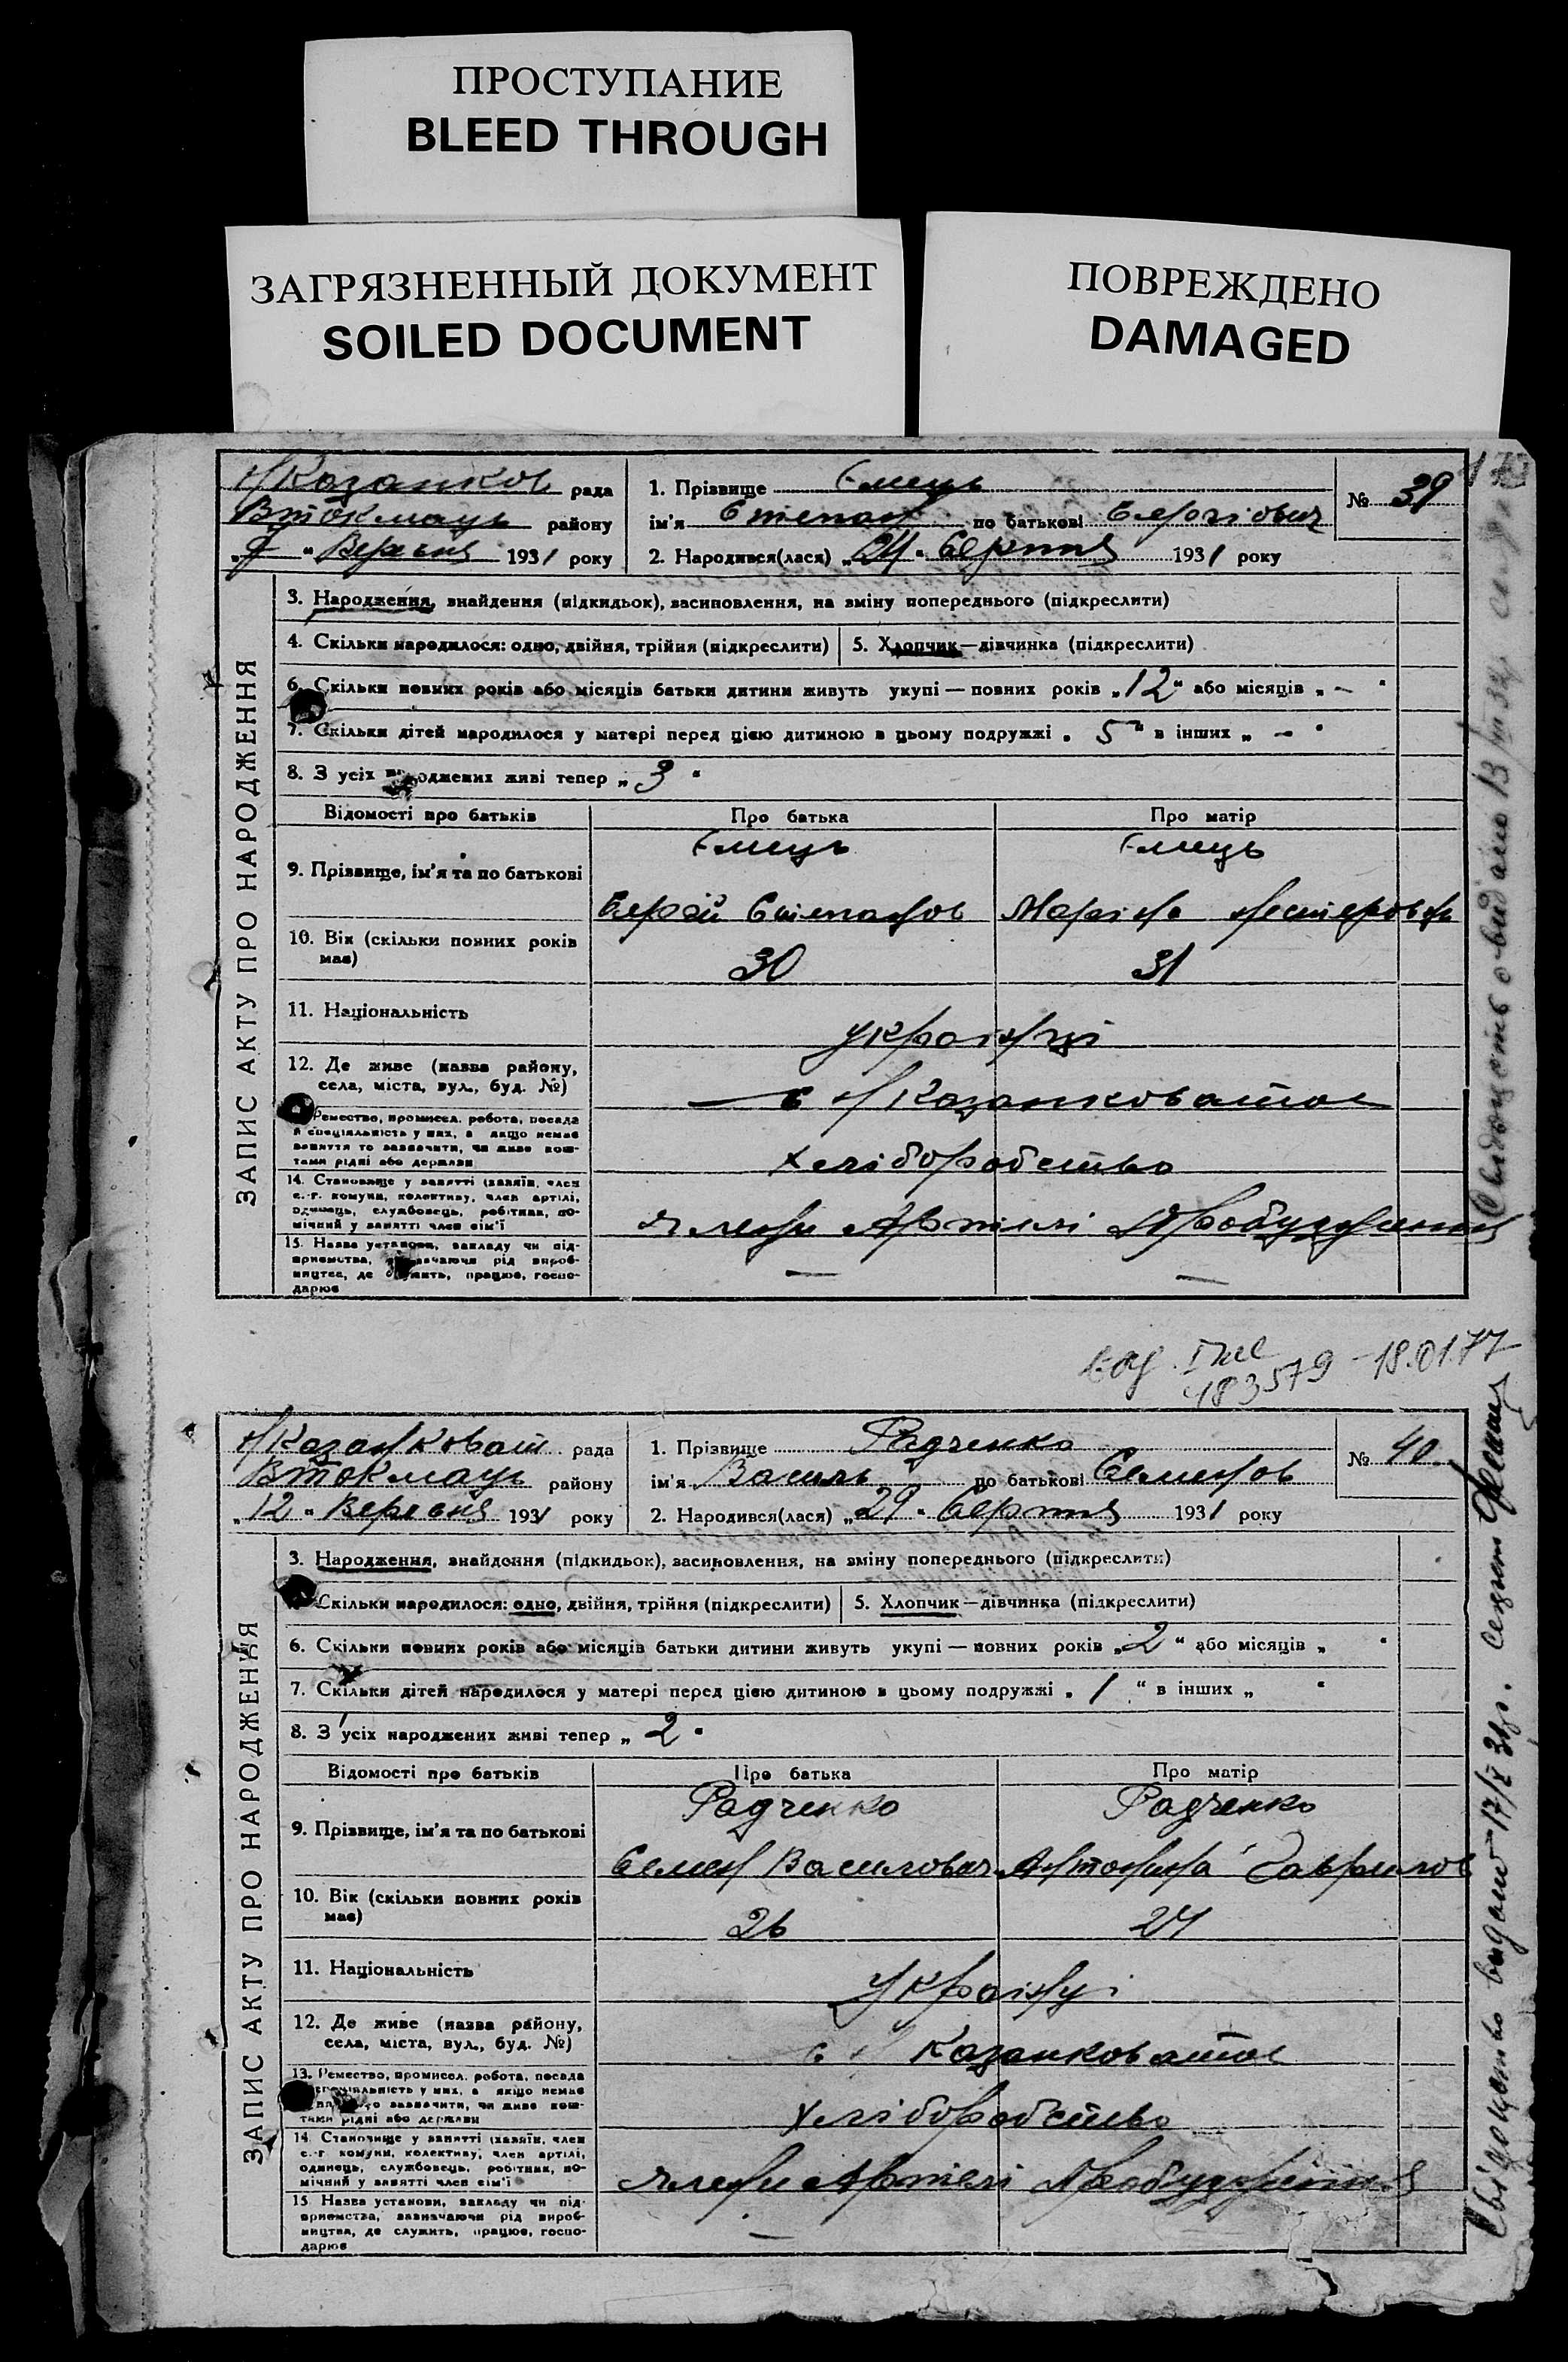 ПРОСТУПАНИЕ
BLEED THROUGH
ЗАГРЯЗНЕННЫЙ ДОКУМЕНТ
SOILED DOCUMENT
ПОВРЕЖДЕНО
DAMAGED
ЗАПИС АКТУ ПРО НАРОДЖЕННЯ
Н Казанков рада
Втокмаць району
" Вересня 1931 року
1. Прізвище Ємець
№ 39
ім'я Степан по батькові Сергіович
2. Народився(лася) „24" Серпня 1931 року
3. Народження, знайдення (підкидьок), засиновлення, на зміну попереднього (підкреслити)
4. Скільки народилося: одно, двійня, трійня (підкреслити) 5. Хлопчик—дівчинка (підкреслити)
6. Скільки повних років або місяців батьки дитини живуть укупі — повних років „12" або місяців „—"
7. Скільки дітей народилося у матері перед цією дитиною в цьому подружжі „5" в інших „—"
8. З усіх народжених живі тепер „3"
Відомості про батьків Про батька Про матір
9. Прізвище, ім'я та по батькові
Ємець Ємець
Сергій Степанов Марія Нестеровна
10. Вік (скільки повних років має) 30 31
11. Національність українці
12. Де живе (назва району, села, міста, вул., буд. №) с Н Казанковатое
Ремество, промисел, робота, посада й спеціяльність у них, а якщо немає заняття то зазначити, чи живе коштами рідні або держави
хліборобство
14. Становище у занятті (хазяїн, член с.-г. комуни, колективу, член артілі, одинець, службовець, робітник, помічний у занятті член сім'ї
члени Артілі Пробуждення
15. Назва установи, закладу чи підприємства, зазначаючи рід виробництва, де служить, працює, господарює
— —
183579 – 18.01.77
ЗАПИС АКТУ ПРО НАРОДЖЕННЯ
Н Казанковат рада
Втокмаць району
„12" Вересня 1931 року
1. Прізвище Радченко
№ 40
ім'я Василь по батькові Семенов
2. Народився(лася) „29" Серпня 1931 року
3. Народження, знайдення (підкидьок), засиновлення, на зміну попереднього (підкреслити)
Скільки народилося: одно, двійня, трійня (підкреслити) 5. Хлопчик—дівчинка (підкреслити)
6. Скільки повних років або місяців батьки дитини живуть укупі — повних років „2" або місяців „ "
7. Скільки дітей народилося у матері перед цією дитиною в цьому подружжі „1" в інших „ "
8. З усіх народжених живі тепер „2"
Відомості про батьків Про батька Про матір
9. Прізвище, ім'я та по батькові
Радченко Радченко
Семен Василович Антонина Гаврилов
10. Вік (скільки повних років має) 26 24
11. Національність Українці
12. Де живе (назва району, села, міста, вул., буд. №) с Н Казанковатое
13. Ремество, промисел, робота, посада спеціяльність у них, а якщо немає то зазначити, чи живе коштами рідні або держави
хліборобство
14. Становище у занятті (хазяїн, член с.-г. комуни, колективу, член артілі, одинець, службовець, робітник, помічний у занятті член сім'ї
члени Артілі Пробуждення
15. Назва установи, закладу чи підприємства, зазначаючи рід виробництва, де служить, працює, господарює
—
Свідоцтво видано 17/X 31р.